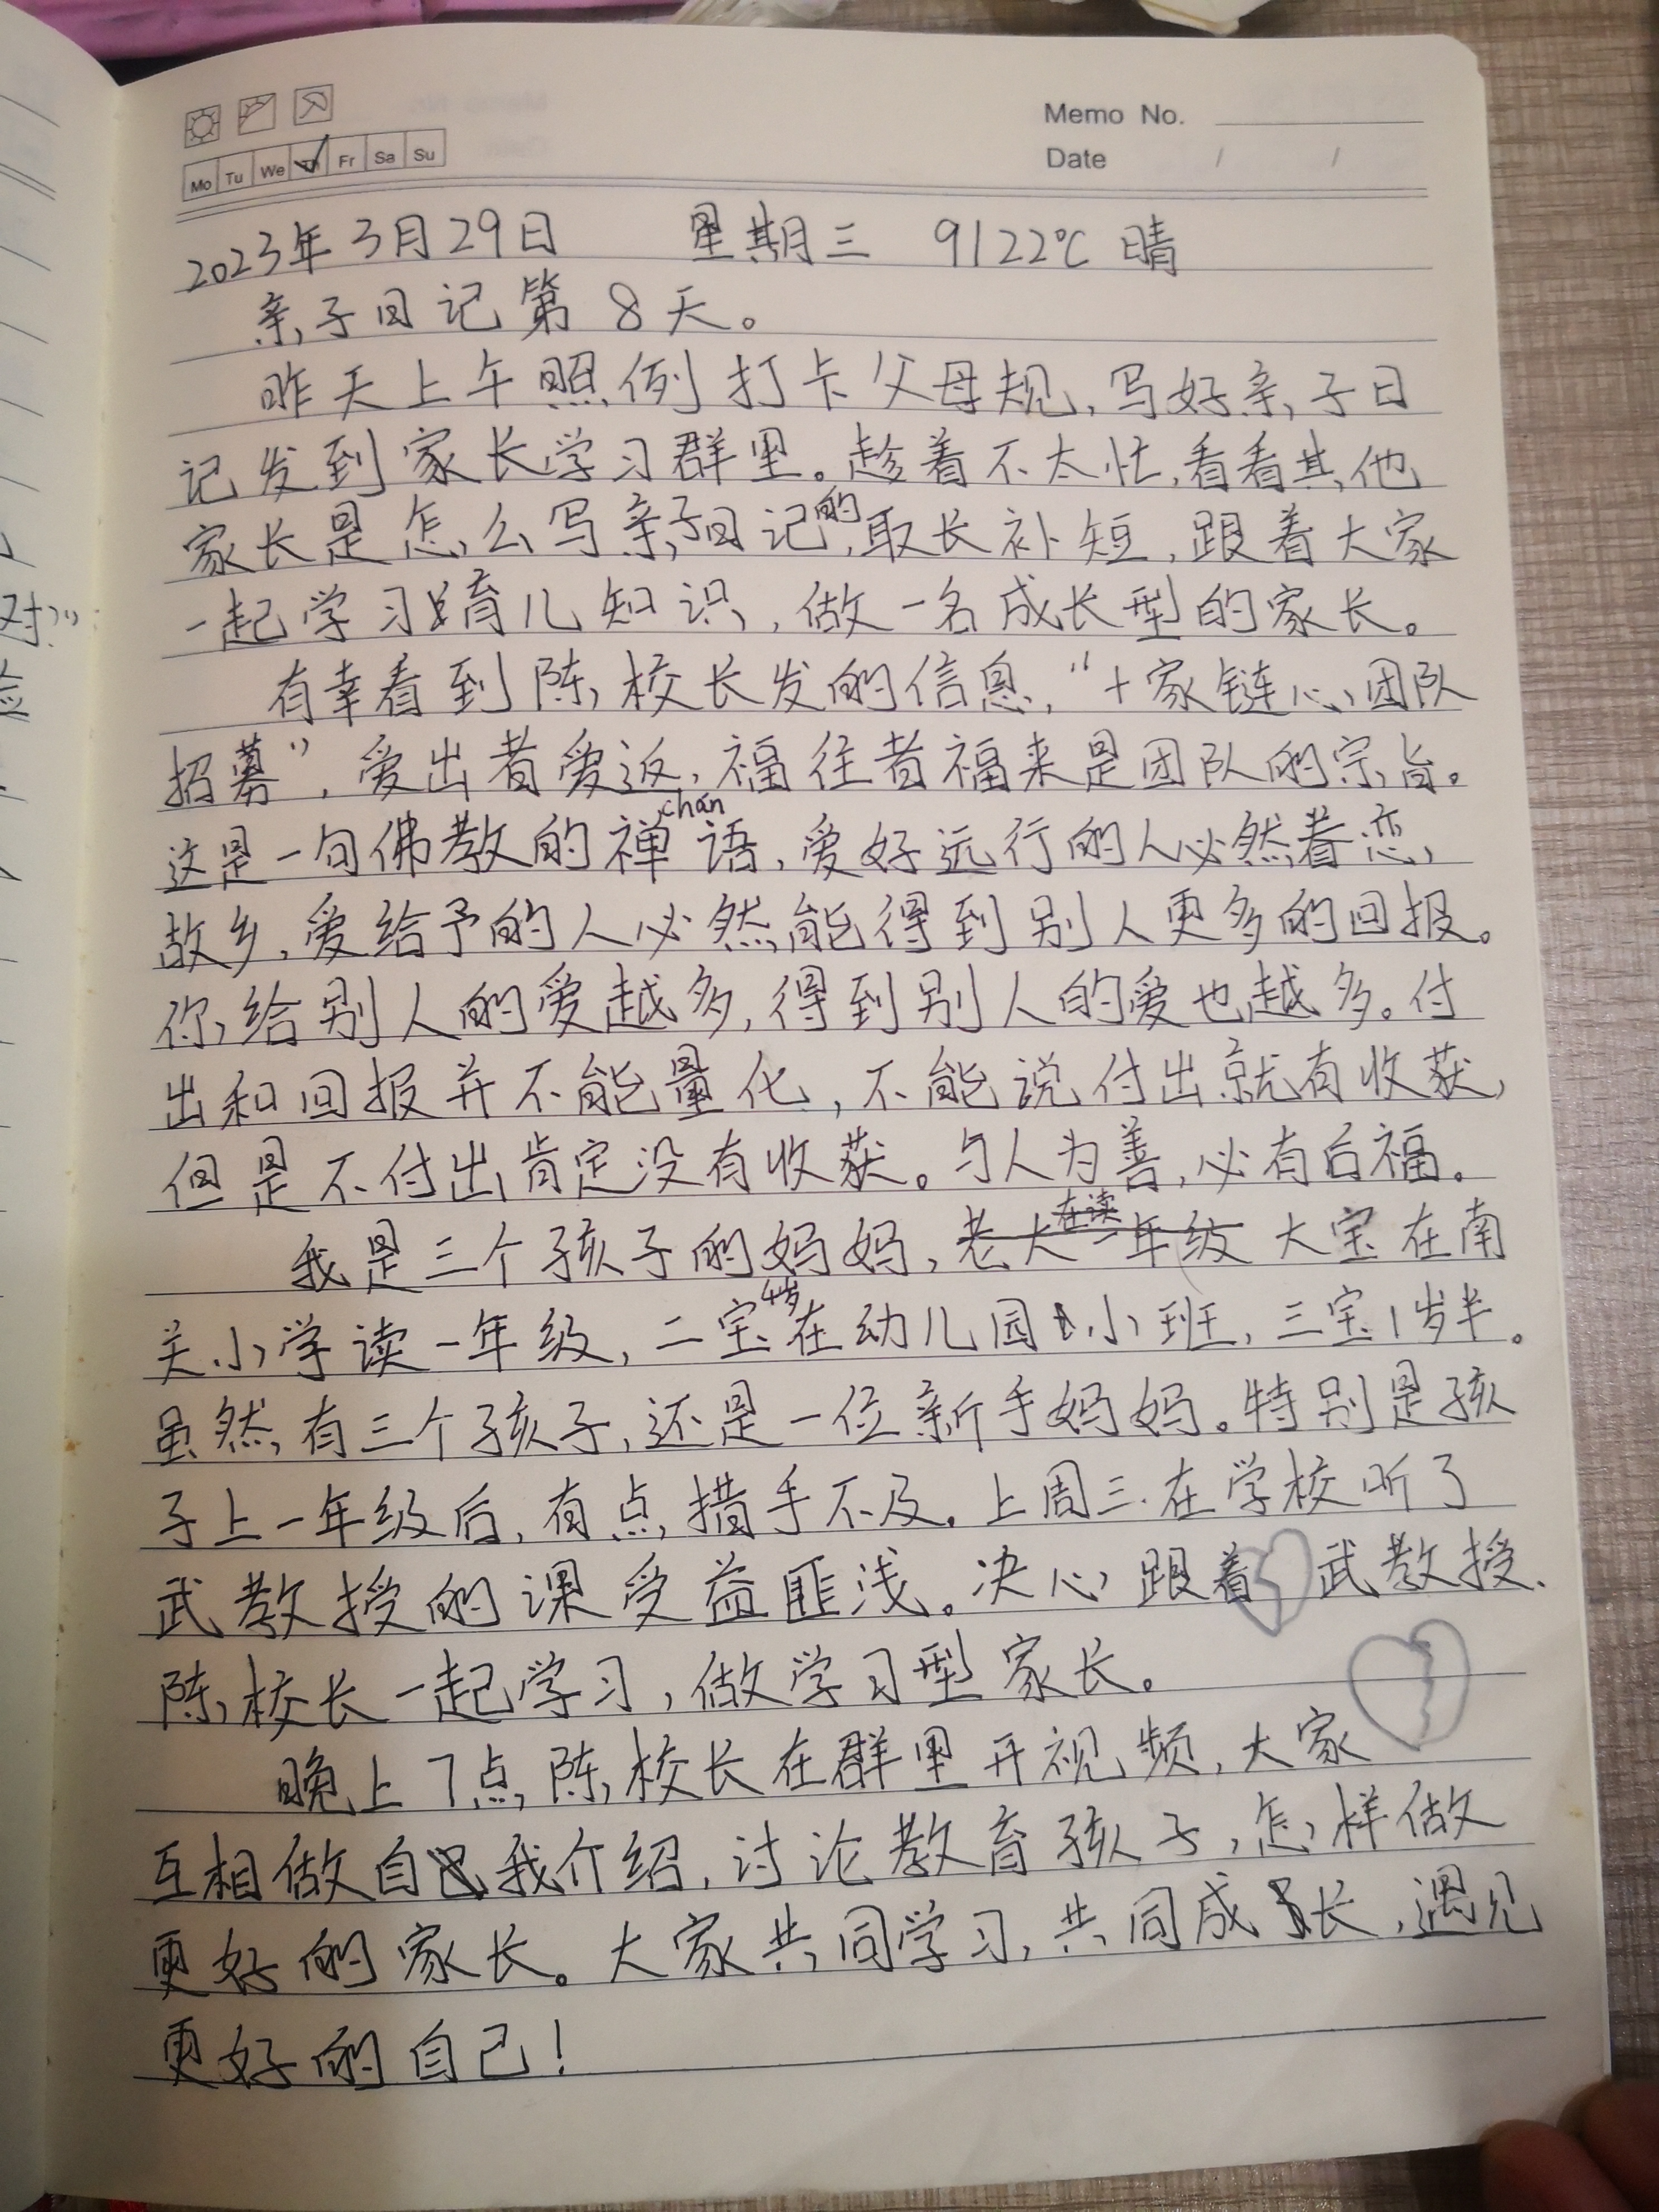 Memo No.
Mo Tu We Th Fr Sa Su
Date / /
2023年3月29日 星期三 9122℃ 晴
亲子日记第8天。
昨天上午照例打卡父母规,写好亲子日
记发到家长学习群里。趁着不太忙,看看其他
家长是怎么写亲子日记的,取长补短,跟着大家
一起学习育儿知识,做一名成长型的家长。
有幸看到陈校长发的信息,“十家链心团队
招募”,爱出者爱返,福往者福来是团队的宗旨。
这是一句佛教的禅chán语,爱好远行的人必然着恋
故乡,爱给予的人必然能得到别人更多的回报。
你给别人的爱越多,得到别人的爱也越多。付
出和回报并不能量化,不能说付出就有收获,
但是不付出肯定没有收获。与人为善,必有后福。
我是三个孩子的妈妈,老大在读一年级大宝在南
关小学读一年级,二宝4岁在幼儿园小班,三宝1岁半。
虽然有三个孩子,还是一位新手妈妈。特别是孩
子上一年级后,有点措手不及。上周三在学校听了
武教授的课受益匪浅。决心跟着武教授、
陈校长一起学习,做学习型家长。
晚上7点,陈校长在群里开视频,大家
互相做自我介绍,讨论教育孩子,怎样做
更好的家长。大家共同学习,共同成长,遇见
更好的自己!